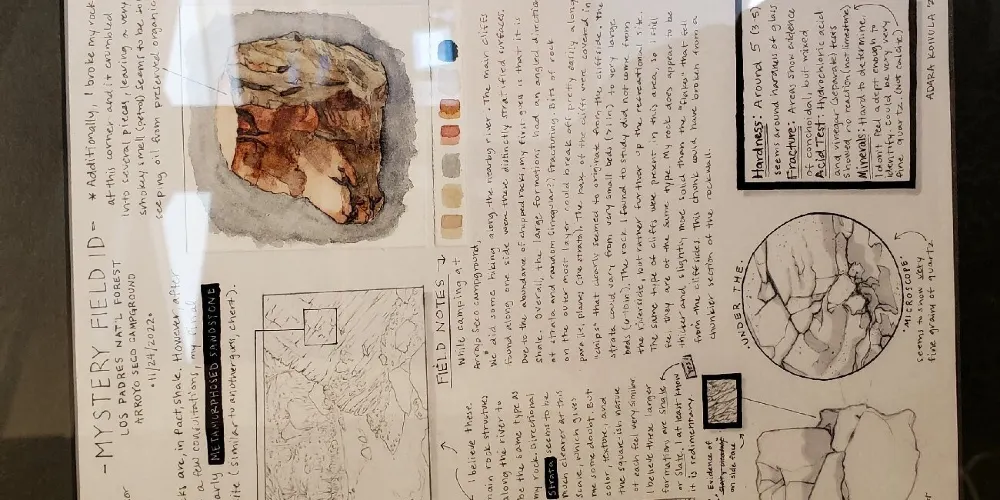 -MYSTERY FIELD ID-
LOS PADRES NAT'L FOREST
ARROYO SECO CAMPGROUND
•11/24/2022•
* Additionally, I broke my rock
at this corner and it crumbled
into several pieces, leaving a very
smokey smell (petro), seems to be
seeping oil from preserved organic
are in fact, shale. However after
a few consultations, my final
METAMORPHOSED SANDSTONE
(similar to another guess, chert).
FIELD NOTES ↓
While camping at
Arroyo Seco campground,
we did some hiking along the nearby river. The main cliffs
found along one side were these distinctly strait field surfaces.
Due to the abundance of chipped rocks, my first guess is that it is
shale. Overall, the large formations had an angled direction
of strata and random (irregular?) fracturing. Bits of rock
on the outer most layer could break off pretty easily along
planes (the strata). The base of the cliffs were covered in
"chips" that clearly seemed to originate from the cliffside. The
strata could vary from very small beds to very large
beds. The rock I found to study did not come from
the riverside, but rather further up the recreational site.
The same type of cliffs were present in this area, so I still
they are of the same type. My rock does appear to be
thicker and slightly more solid than the "flakes" that fell
from the cliffsides. This chunk could have broken from a
chunkier section of the rockwall.
I believe these
main rock structures
along the river to
be the same type as
my rock. Directional
Strata seems to be
much clearer at this
scale, which gives
me some doubt. But
color, texture, and
the square-ish nature
of each feel very similar.
I believe these larger
formations are shale
or slate, I at least know
it is sedimentary.
Yes!
Evidence of
on side face
UNDER THE
"MICROSCOPE"
seems to show very
fine grains of quartz.
Hardness: Around 5 (3-5)
seems around hardness of glass
Fracture: Areas show evidence
of conchoidal, but mixed
Acid Test: Hydrochloric acid
and vinegar (separate) tests
showed no reaction (not limestone)
Minerals: Hard to determine,
I don't feel adept enough to
identify. Could be very very
fine quartz. (Not calcite)
ADARA KOIVULA '2